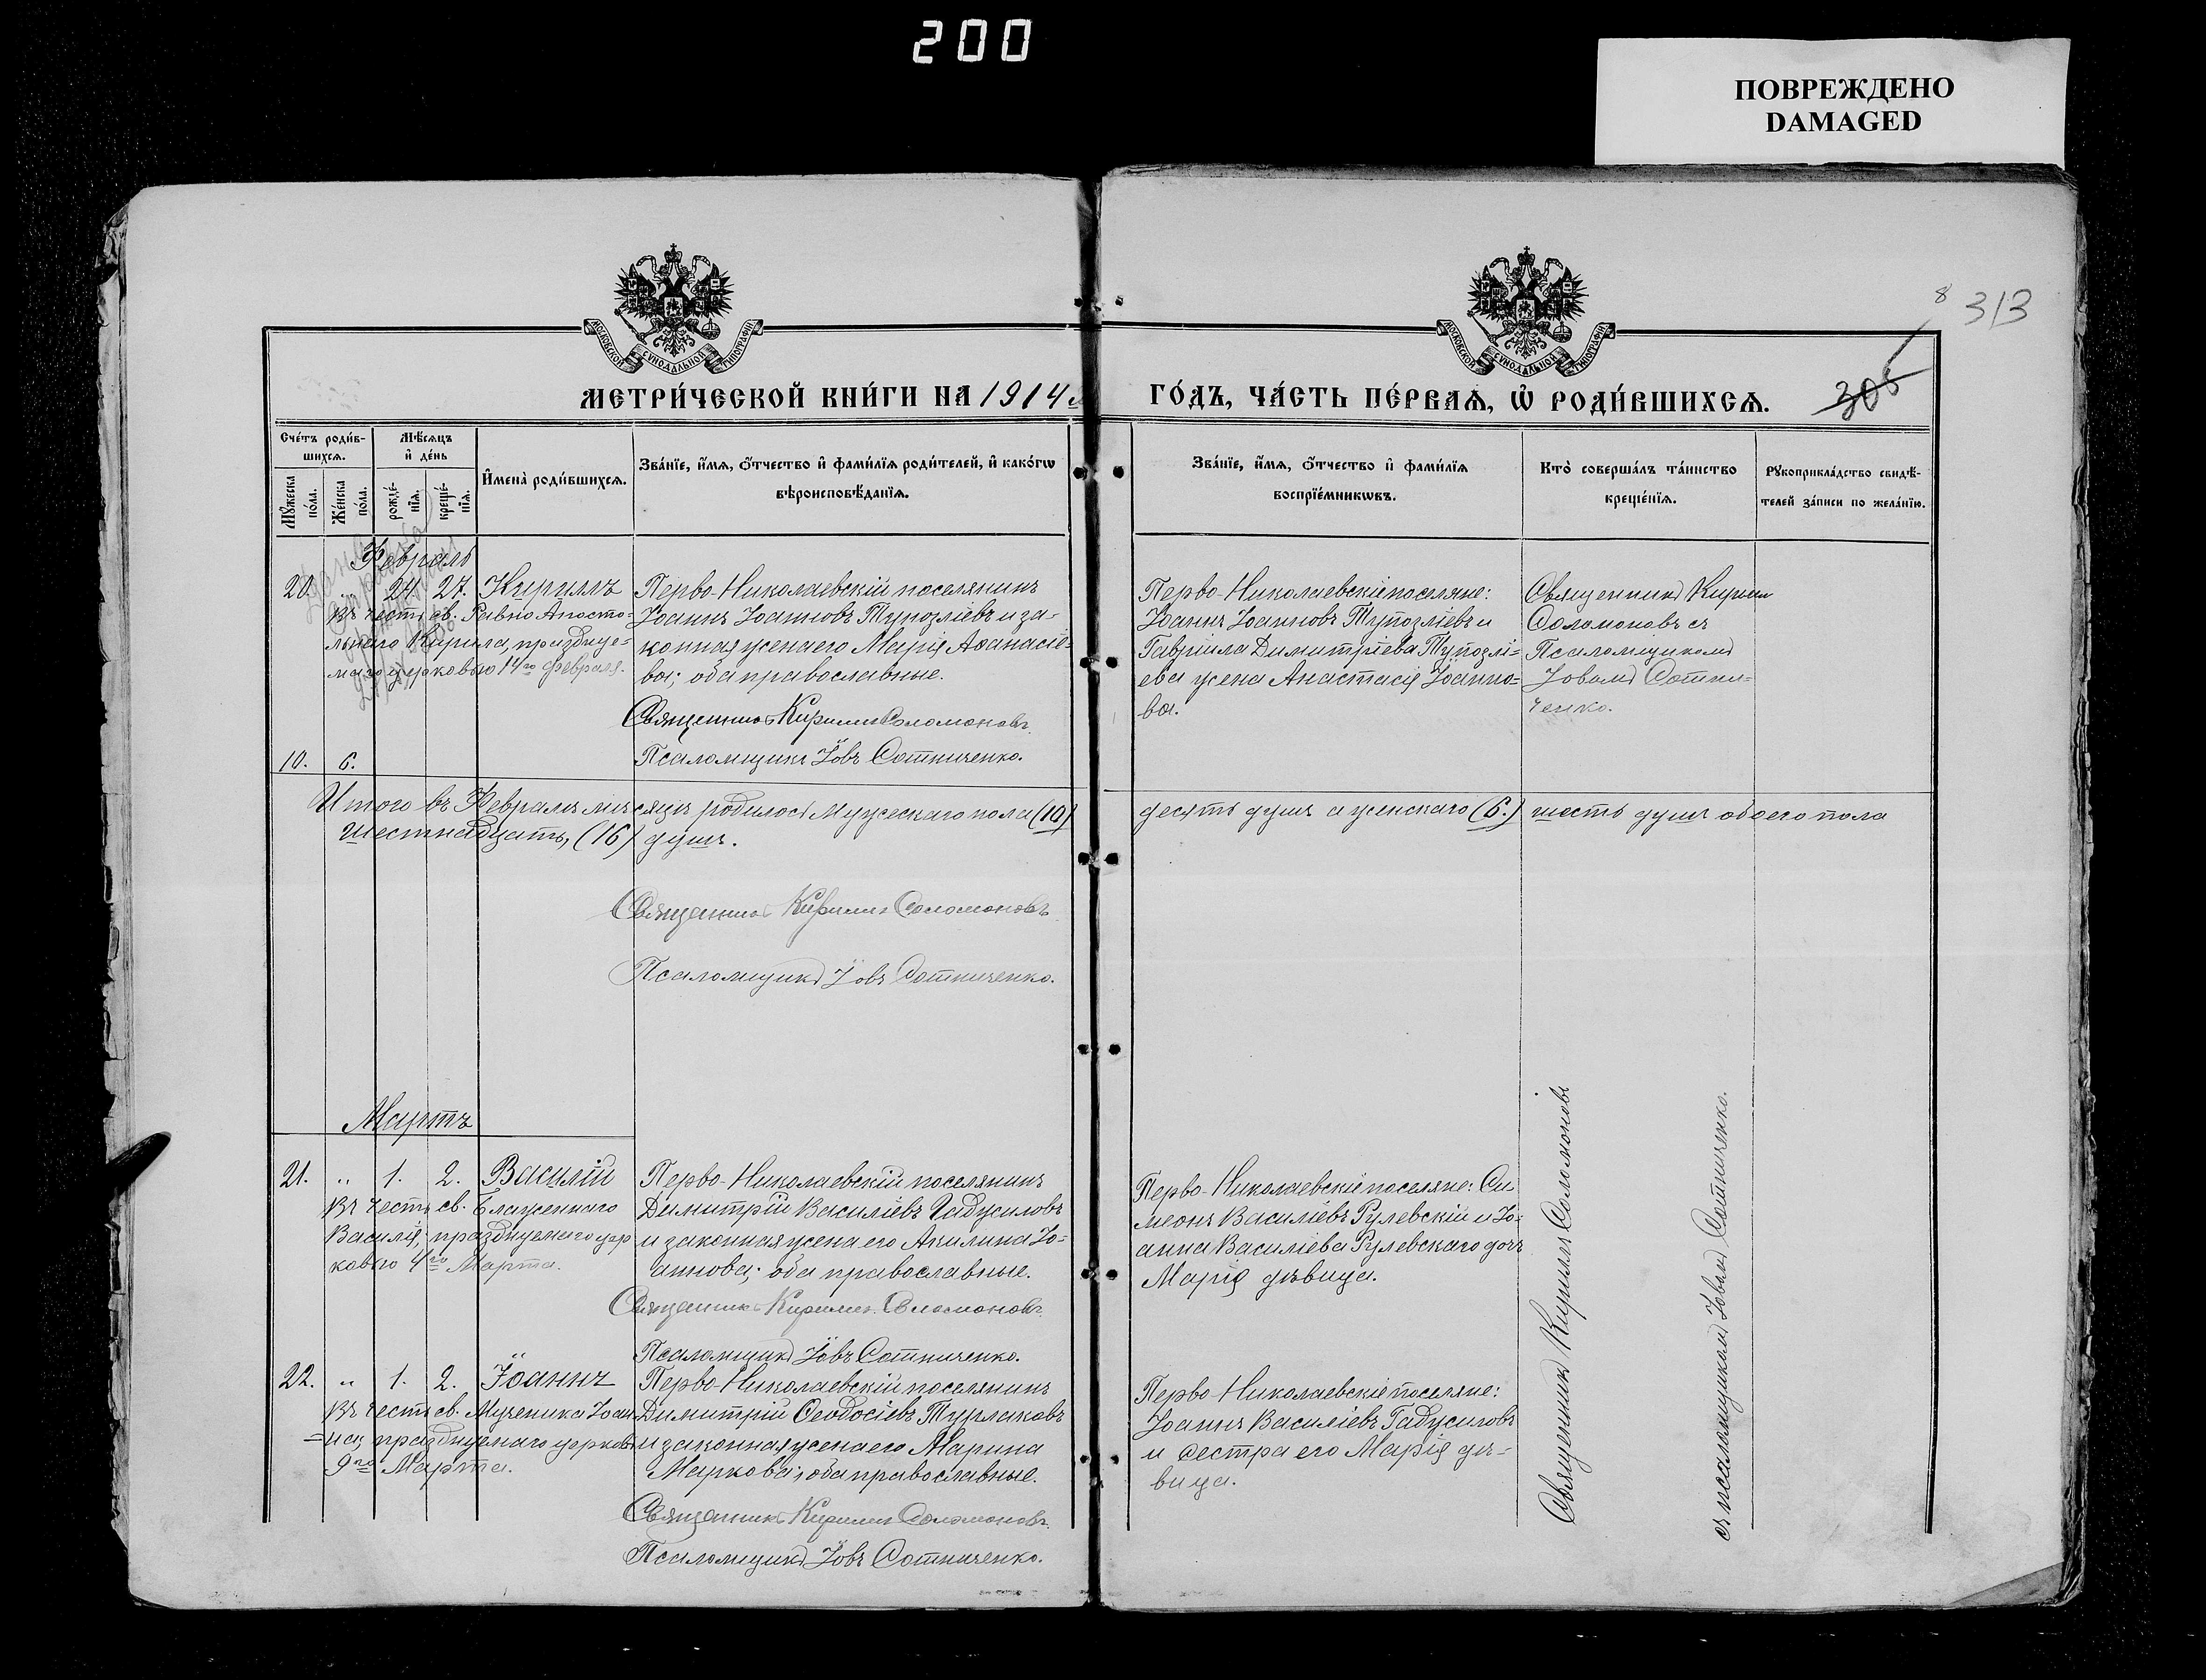 200
ПОВРЕЖДЕНО
DAMAGED
8 313
305
МОСКОВСКОЙ СѴНОДАЛЬНОЙ ТИПОГРАФІИ
МОСКОВСКОЙ СѴНОДАЛЬНОЙ ТИПОГРАФІИ
МЕТРИ́ЧЕСКОЙ КНИ́ГИ НА 1914 й
ГО́ДЪ, ЧА́СТЬ ПЕ́РВАѦ, Ѡ҆ РОДИ́ВШИХСѦ.
Сче́тъ роди́в-
шихсѧ.
Мѣ́сѧцъ
и҆ де́нь
Мꙋ́жеска
по́ла.
Же́нска
по́ла.
рожде́-
нїѧ.
креще́-
нїѧ.
И҆мена̀ роди́вшихсѧ.
Зва́нїе, и҆́мѧ, ѻ҆́тчество и҆ фами́лїѧ роди́телей, и҆ како́гѡ
вѣроисповѣ́данїѧ.
Зва́нїе, и҆́мѧ, ѻ҆́тчество и҆ фами́лїѧ
воспрїе́мникѡвъ.
Кто̀ соверша́лъ та́инство
креще́нїѧ.
Рꙋкоприкла́дство свидѣ́-
телей за́писи по жела́нїю.
Февраль
20. „ 24. 27. Кириллъ
Въ честь св. Равно Апосто-
льнаго Кирила, празднуе-
маго церковью 14го февраля.
Перво-Николаевскій поселянинъ
Іоаннъ Іоанновъ Тупозліевъ и за-
конная жена его Марія Аѳанасіе-
ва; оба православные.
Священникъ Кириллъ Соломоновъ.
Псаломщикъ Іовъ Сотниченко.
Перво-Николаевскіе поселяне:
Іоаннъ Іоанновъ Тупозліевъ и
Гавріила Димитріева Тупозлі-
ева жена Анастасія Іоанно-
ва.
Священникъ Кирилл
Соломоновъ съ
Псаломщикомъ
Іовомъ Сотни-
ченко.
10. 6.
Итого въ Февралѣ мѣсяцѣ родилось Мужескаго пола (10) десять душъ а женскаго (6.) шесть душъ обоего пола
шестнадцать, (16) душъ.
Священникъ Кириллъ Соломоновъ
Псаломщикъ Іовъ Сотниченко.
Мартъ
21. „ 1. 2. Василій
Въ честь св. Блаженнаго
Василія, празднуемаго цер
ковью 4го Марта.
Перво-Николаевскій поселянинъ
Димитрій Василіевъ Гадужиловъ
и законная жена его Акилина Іо-
аннова; оба православные.
Священникъ Кириллъ Соломоновъ
Псаломщикъ Іовъ Сотниченко.
Перво-Николаевскіе поселяне: Си
меонъ Василіевъ Рулевскій и Іо-
анна Василіева Рулевскаго дочь
Марія дѣвица.
22. „ 1. 2. Іоаннъ
Въ честь св. Мученика Іоан
-на, празднуемаго церковью
9го Марта.
Перво-Николаевскій поселянинъ
Димитрій Ѳеодосіевъ Турлаковъ
и законная жена его Марина
Маркова; оба православные.
Священникъ Кириллъ Соломоновъ.
Псаломщикъ Іовъ Сотниченко.
Перво-Николаевскіе поселяне:
Іоаннъ Василіевъ Гадужиловъ
и сестра его Марія дѣ-
вица.
Священникъ Кириллъ Соломоновъ
съ псаломщикомъ Іовомъ Сотниченко.